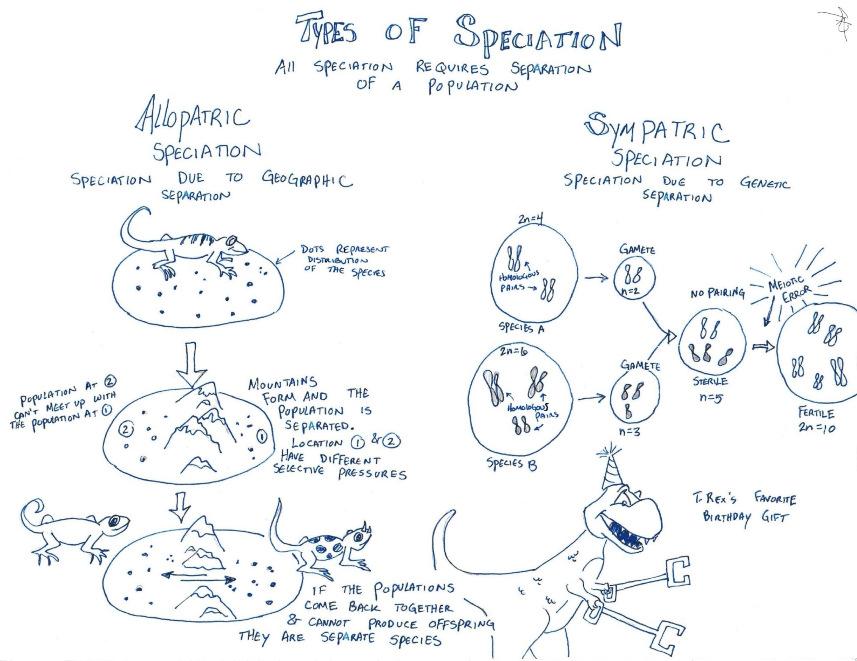 TYPES OF SPECIATION
All SPECIATION REQUIRES SEPARATION
OF A POPULATION
AllOPATRIC
SPECIATION
SPECIATION DUE TO GEOGRAPHIC
SEPARATION
DOTS REPRESENT
DISTRIBUTION
OF THE SPECIES
POPULATION AT ②
CAN'T MEET UP WITH
THE POPULATION AT ①
②
①
MOUNTAINS
FORM AND THE
POPULATION IS
SEPARATED.
LOCATION ① & ②
HAVE DIFFERENT
SELECTIVE PRESSURES
IF THE POPULATIONS
COME BACK TOGETHER
& CANNOT PRODUCE OFFSPRING
THEY ARE SEPARATE SPECIES
SYMPATRIC
SPECIATION
SPECIATION DUE TO GENETIC
SEPARATION
2n=4
HOMOLOGOUS
PAIRS
SPECIES A
GAMETE
n=2
2n=6
HOMOLOGOUS
PAIRS
SPECIES B
GAMETE
n=3
NO PAIRING
STERILE
n=5
MEIOTIC
ERROR
FERTILE
2n=10
T-REX'S FAVORITE
BIRTHDAY GIFT